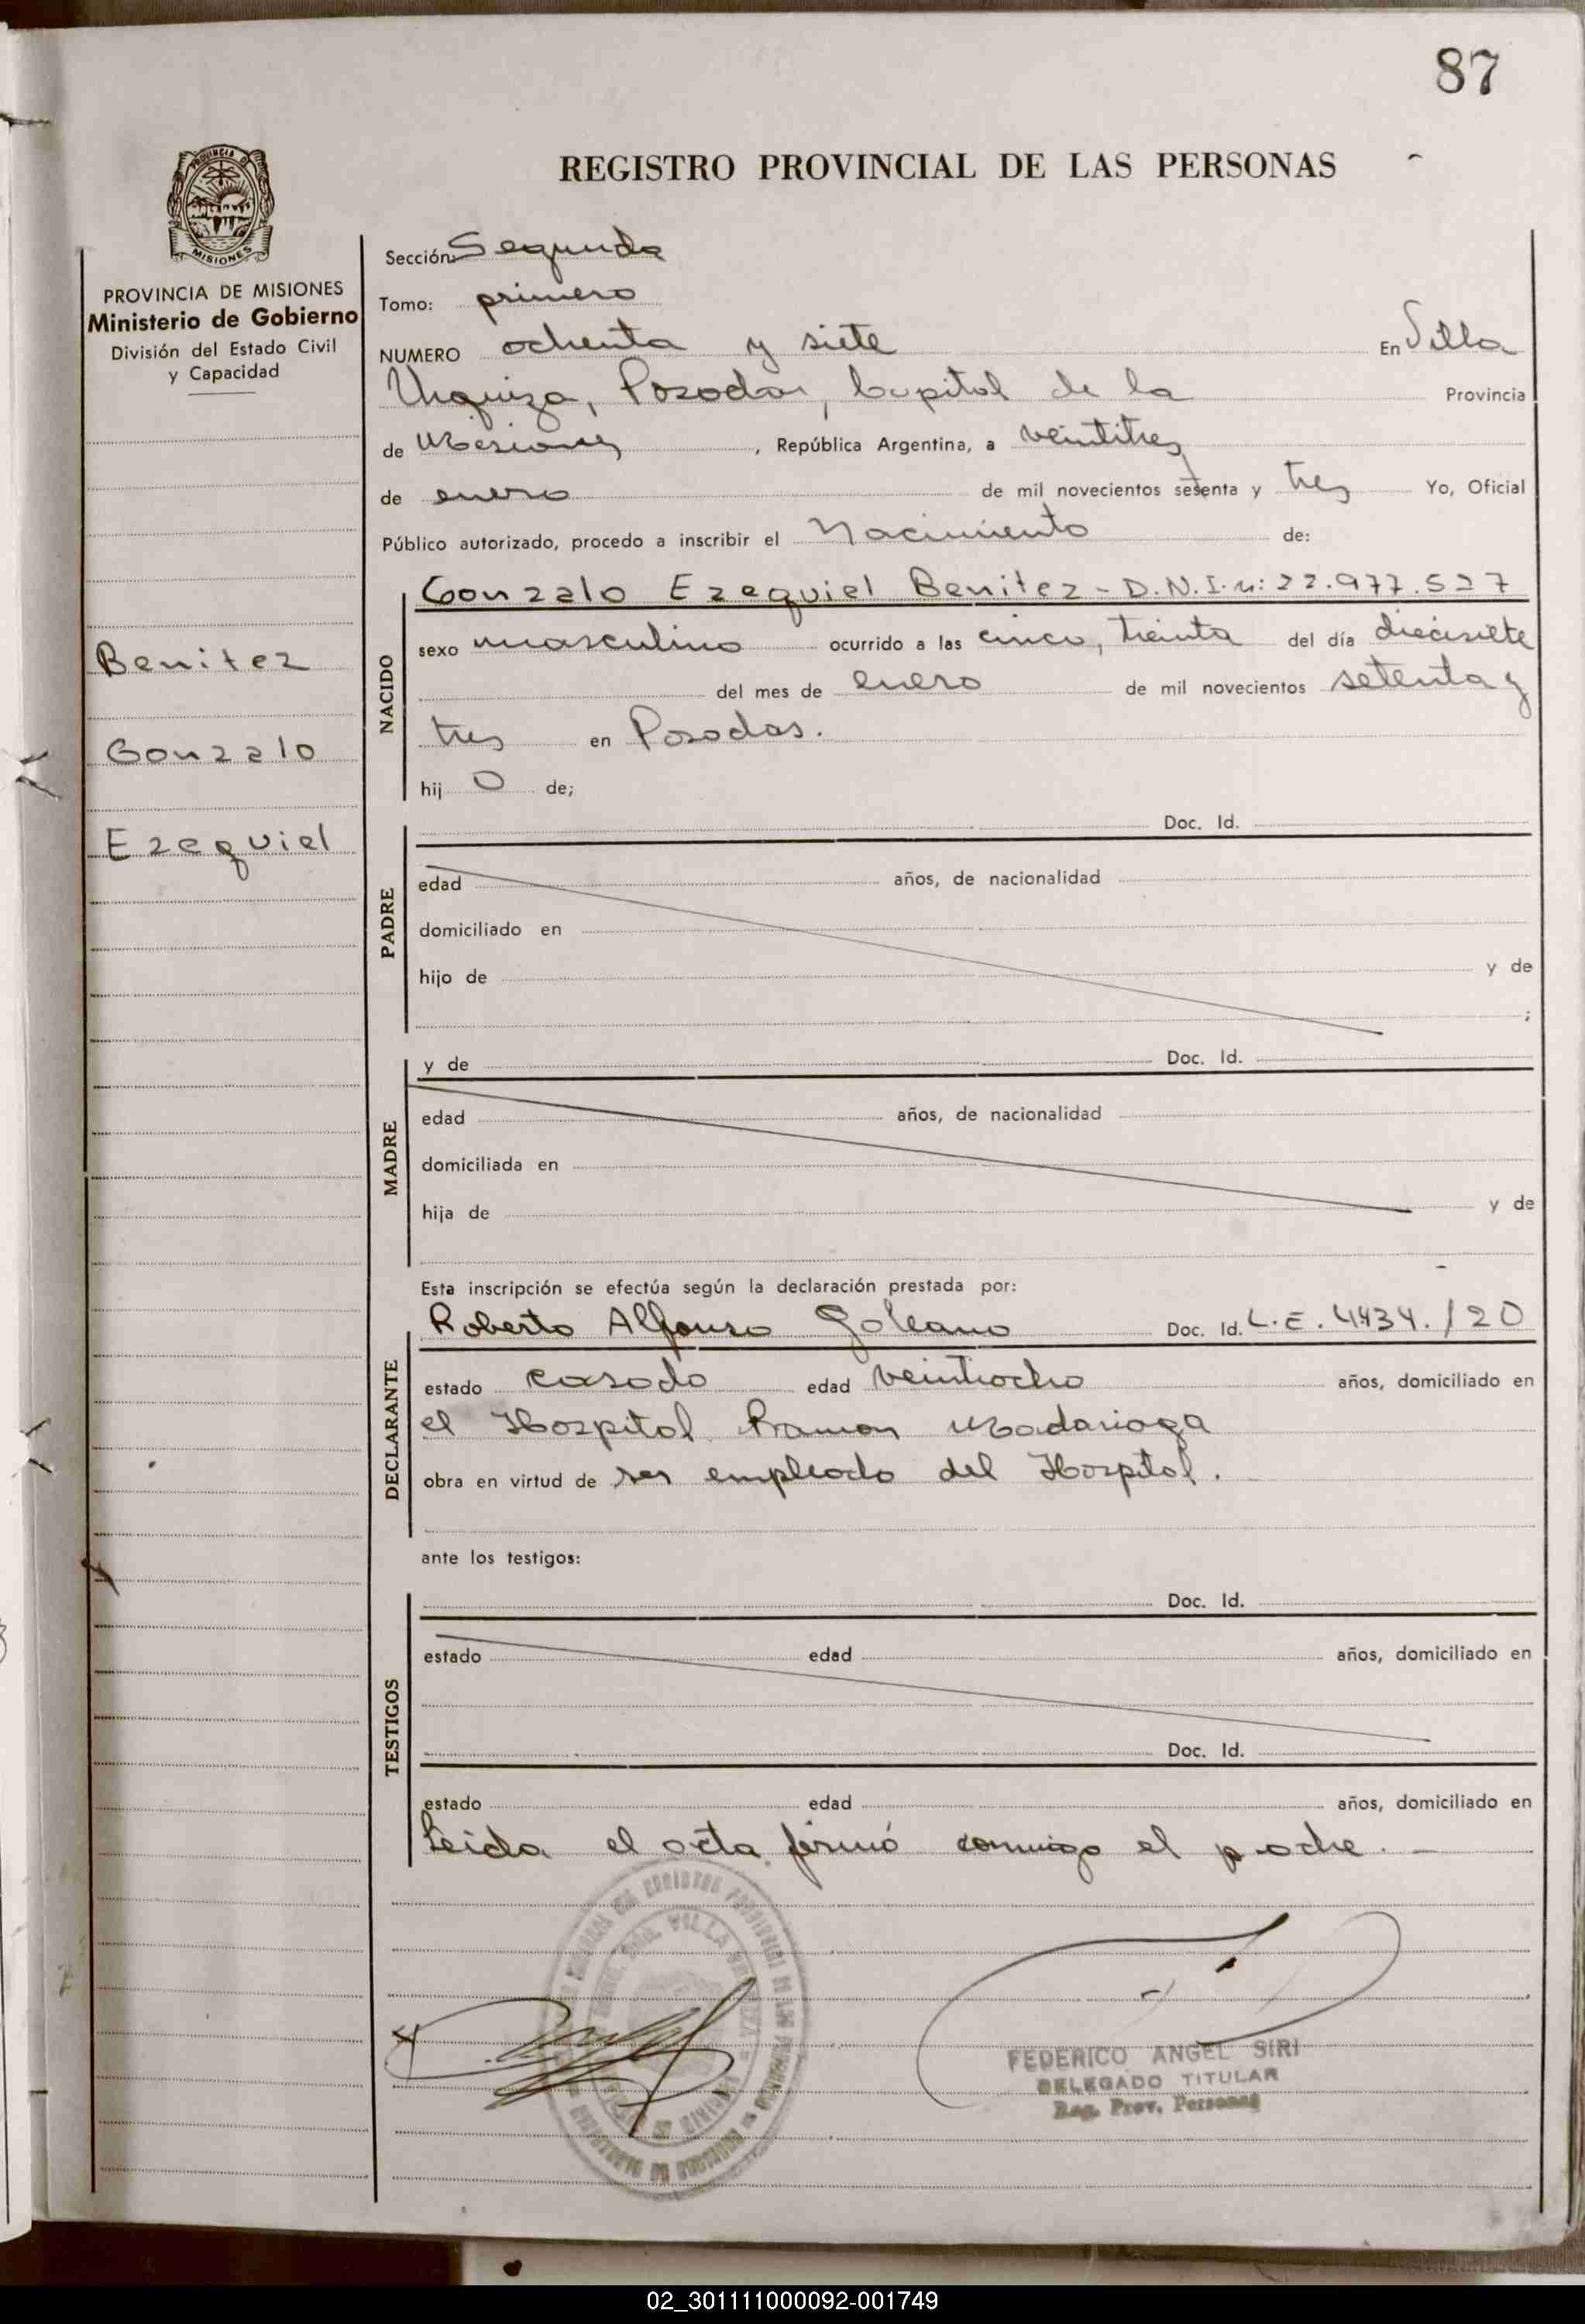 87
REGISTRO PROVINCIAL DE LAS PERSONAS
MISIONES
PROVINCIA DE MISIONES
Ministerio de Gobierno
División del Estado Civil
y Capacidad
Benitez
Gonzalo
Ezequiel
Sección: Segunda
Tomo: primero
NUMERO ochenta y siete En Villa
Urquiza, Posadas, Capital de la Provincia
de Misiones, República Argentina, a veintitres
de enero de mil novecientos setenta y tres Yo, Oficial
Público autorizado, procedo a inscribir el Nacimiento de:
NACIDO
Gonzalo Ezequiel Benitez - D.N.I. n: 22.977.527
sexo masculino ocurrido a las cinco, treinta del día diecisiete
del mes de enero de mil novecientos setenta y
tres en Posadas.
hij o de;
PADRE
Doc. Id.
edad años, de nacionalidad
domiciliado en
hijo de y de
;
MADRE
y de Doc. Id.
edad años, de nacionalidad
domiciliada en
hija de y de
Esta inscripción se efectúa según la declaración prestada por:
DECLARANTE
Roberto Alfonso Galeano Doc. Id. L.E. 4434./20
estado casado edad veintiocho años, domiciliado en
el Hospital Ramon Madariaga
obra en virtud de ser empleado del Hospital.
ante los testigos:
TESTIGOS
Doc. Id.
estado edad años, domiciliado en
Doc. Id.
estado edad años, domiciliado en
Leida el acta firmó conmigo el padre. -
FEDERICO ANGEL SIRI
DELEGADO TITULAR
Reg. Prov. Personas
02_301111000092-001749